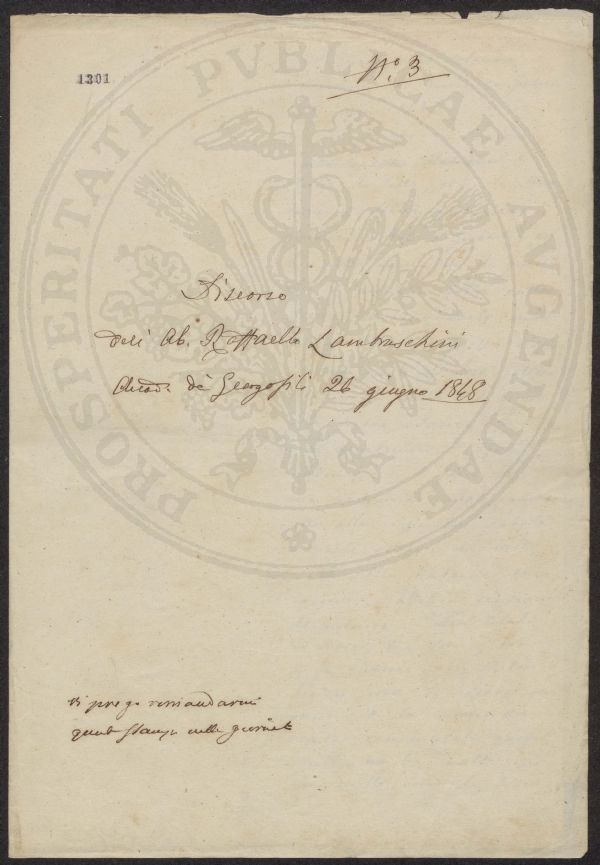 1301
N.º 3
PROSPERITATI PVBLICAE AVGENDAE
Discorso
dell' Ab. Raffaello Lambruschini
Accad. de' Georgofili 26 giugno 1848
Vi prego rimandarmi
queste stampe nella giornata